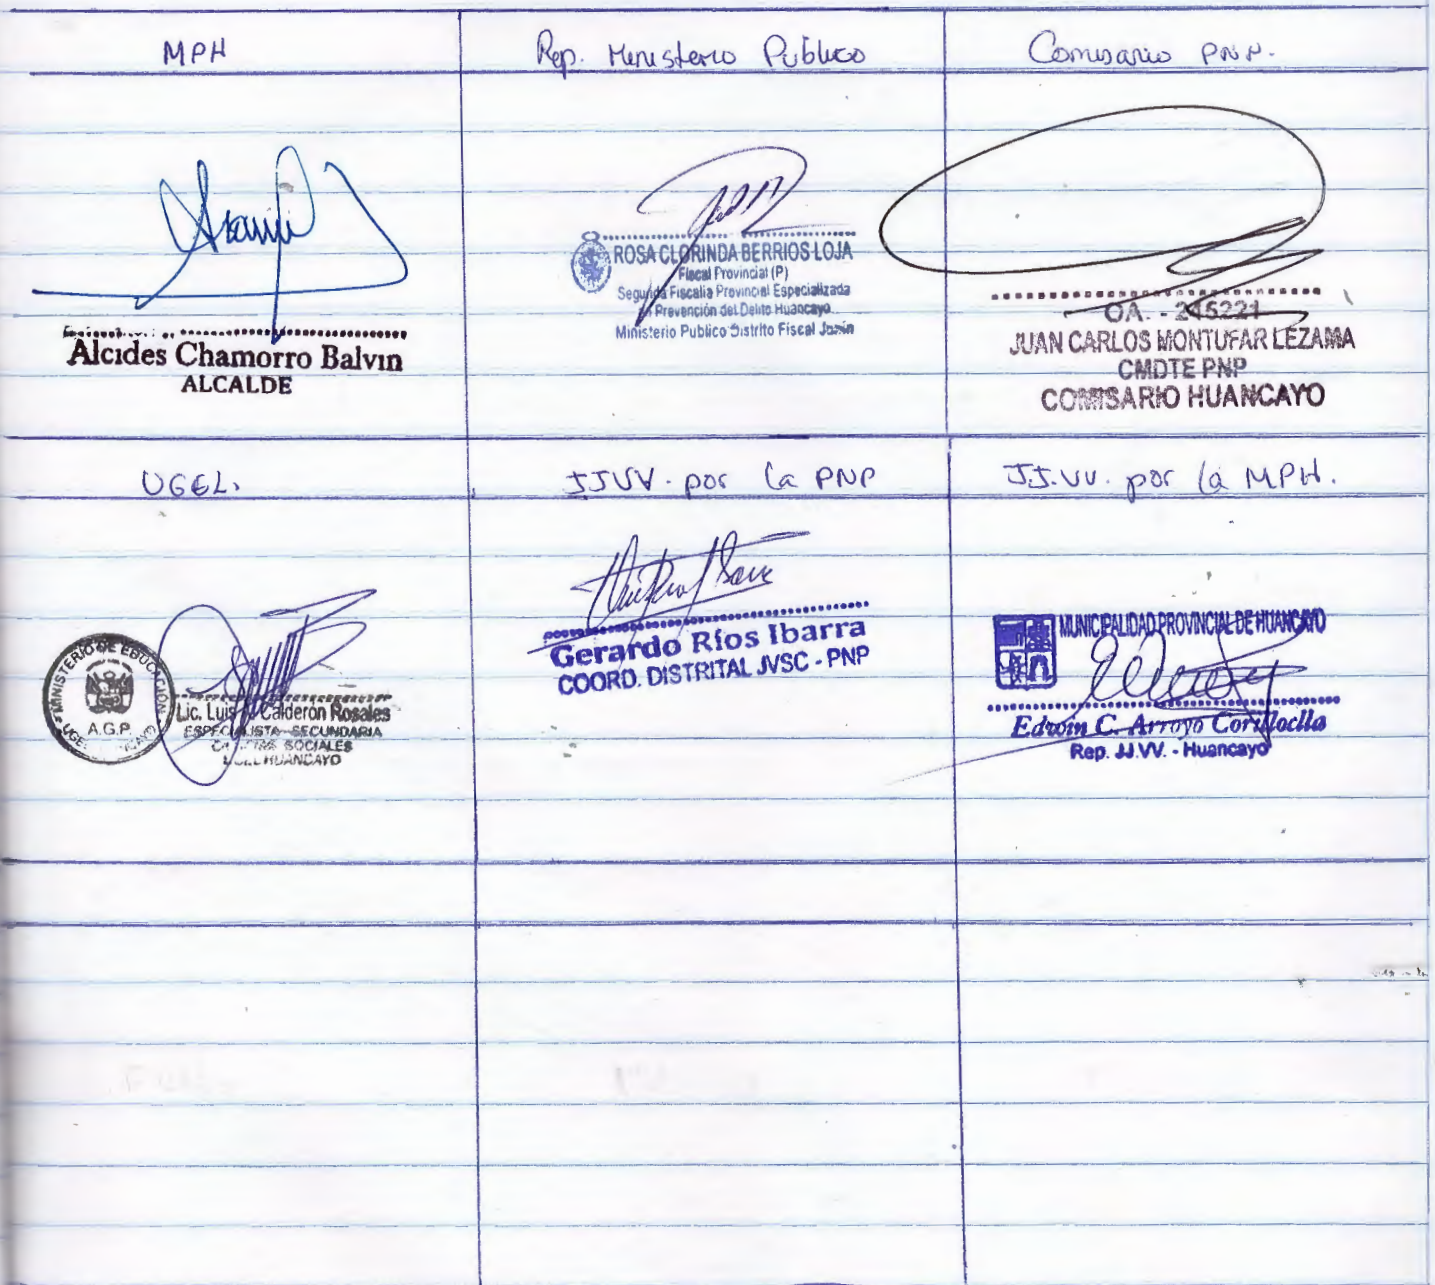 MPH
Rep. Ministerio Público
Comisario PNP.
Alcides Chamorro Balvin
ALCALDE
ROSA CLORINDA BERRIOS LOJA
Fiscal Provincial (P)
Segunda Fiscalia Provincial Especializada
Prevención del Delito Huancayo
Ministerio Publico Distrito Fiscal Junín
OA. - 245221
JUAN CARLOS MONTUFAR LEZAMA
CMDTE PNP
COMISARIO HUANCAYO
UGEL.
JJVV. por la PNP
JJ.VV. por la MPH.
MINISTERIO DE EDUCACIÓN
A.G.P.
Lic. Luis Calderón Rosales
ESPECIALISTA SECUNDARIA
SOCIALES
UGEL HUANCAYO
Gerardo Ríos Ibarra
COORD. DISTRITAL JVSC - PNP
MUNICIPALIDAD PROVINCIAL DE HUANCAYO
Edwin C. Arroyo Corilloclla
Rep. JJ.VV. - Huancayo